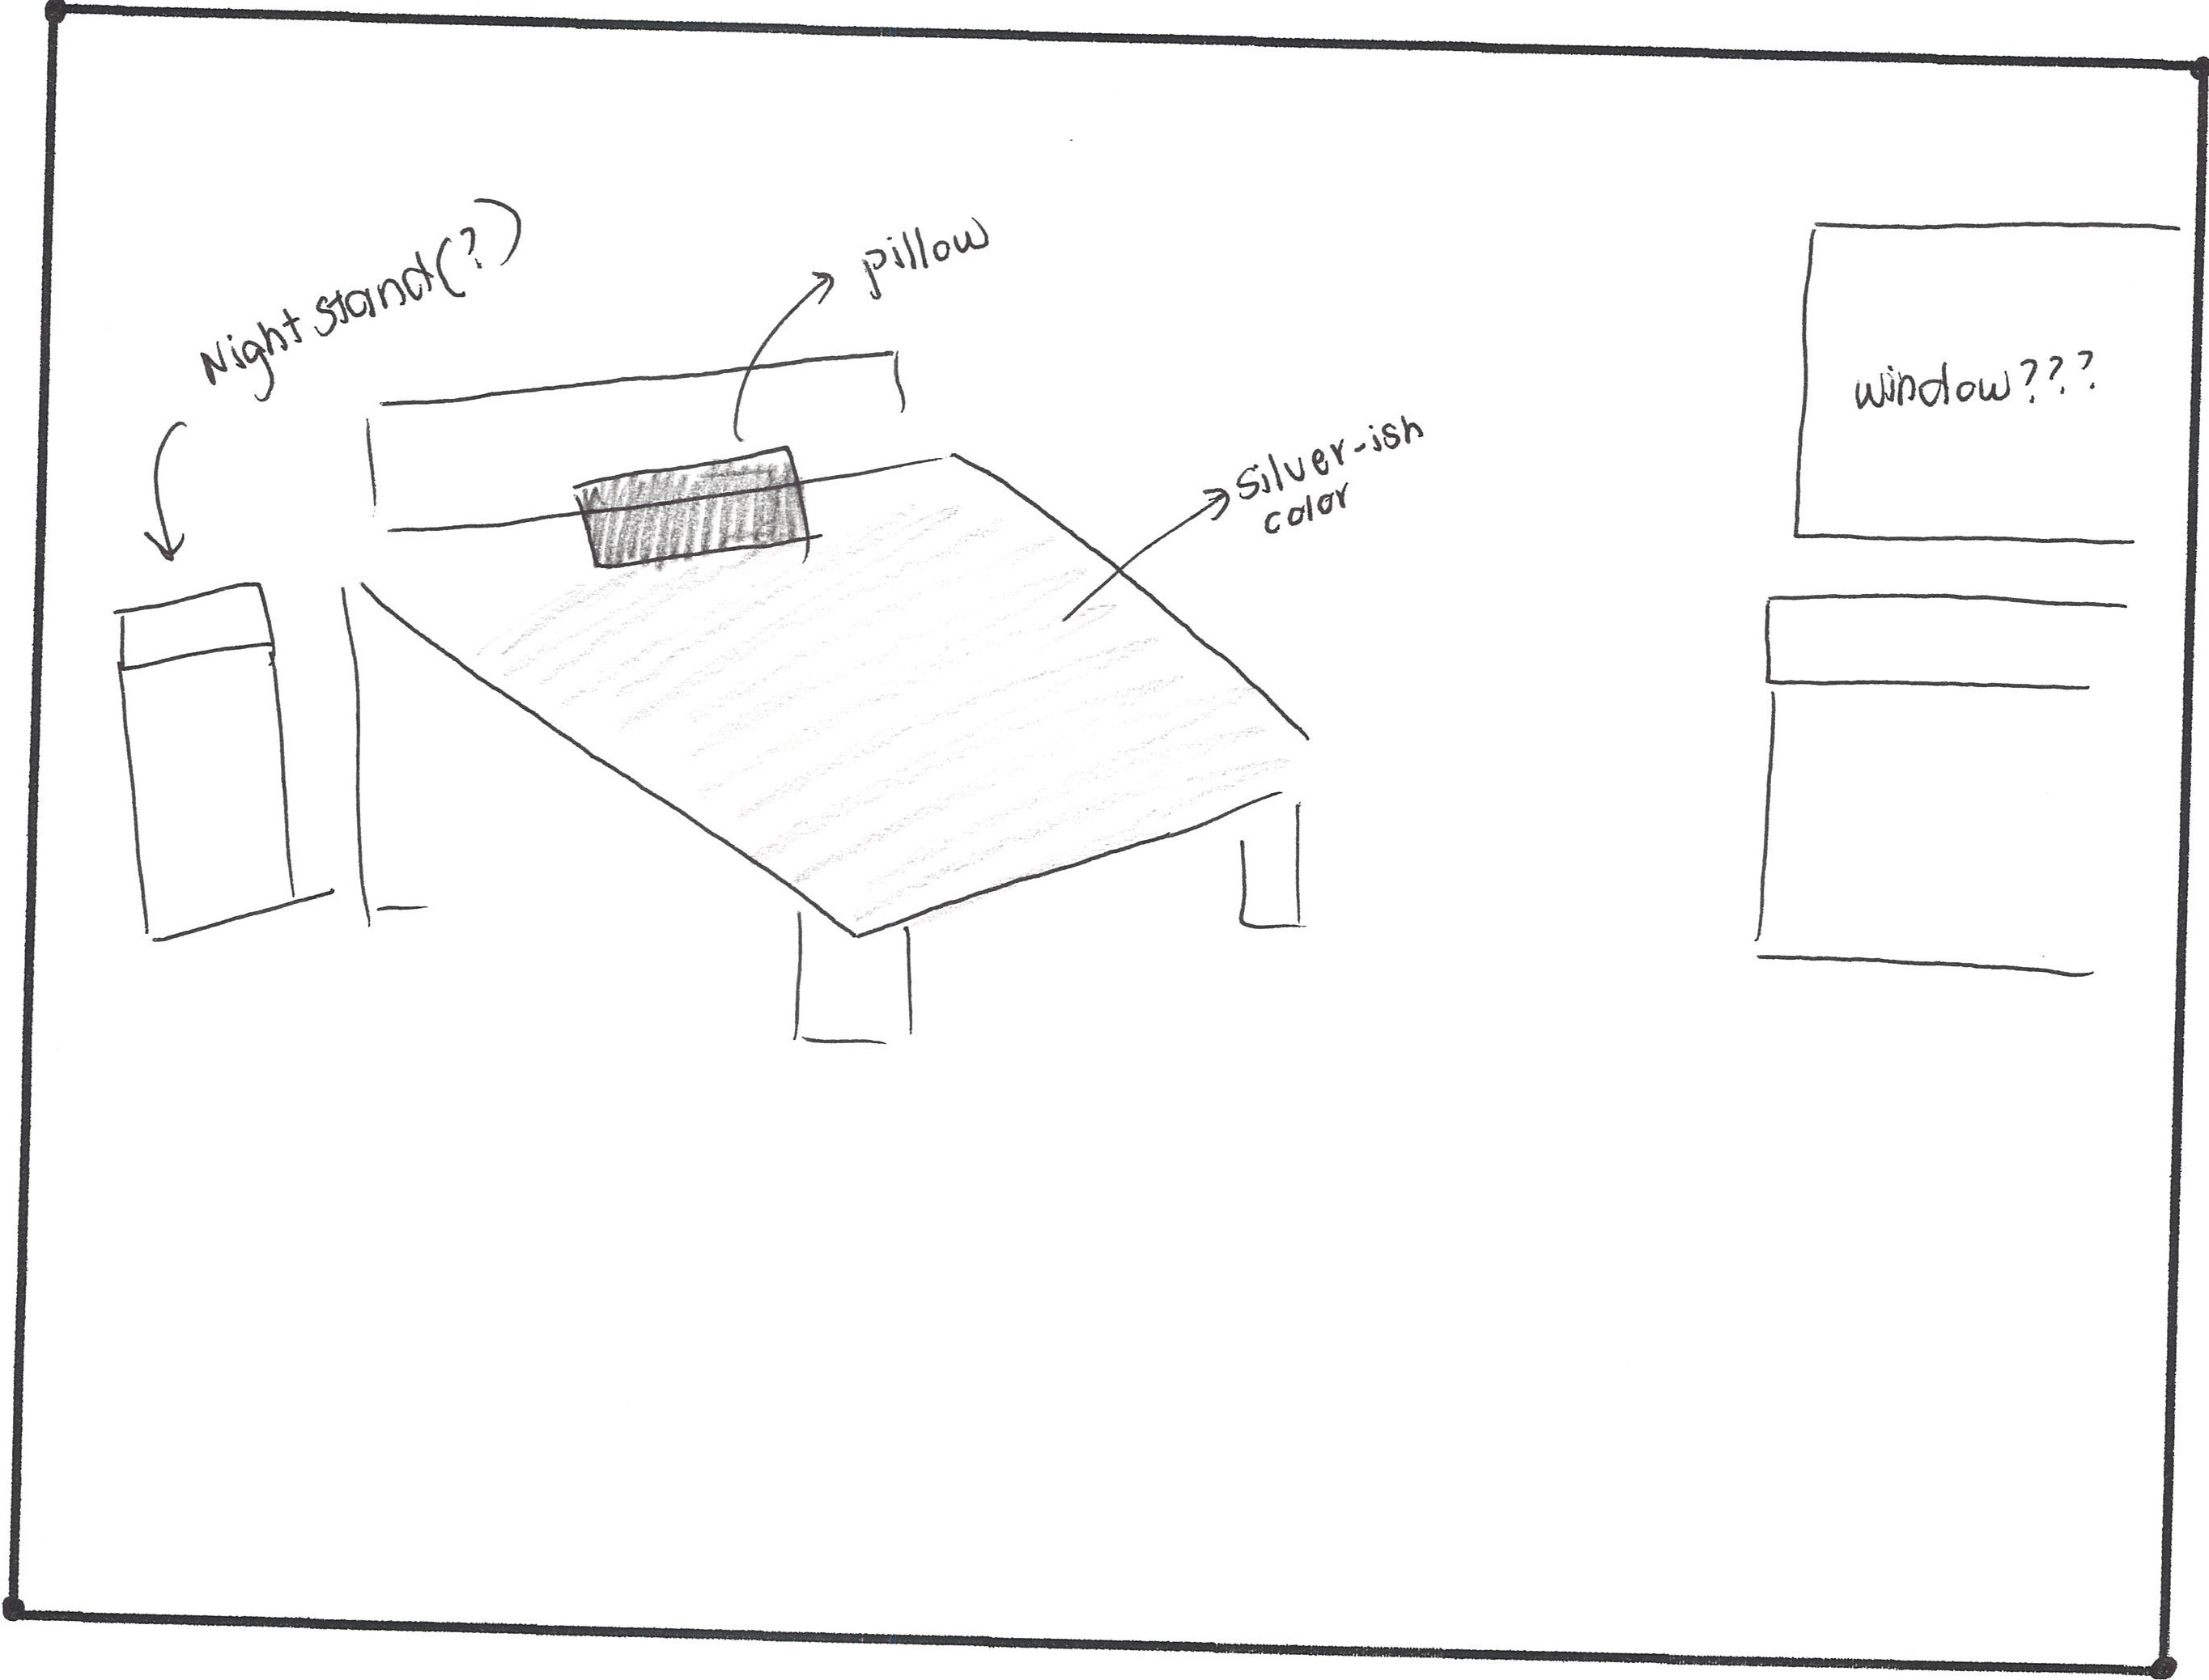 Night stand(?)
pillow
silver-ish
color
window???